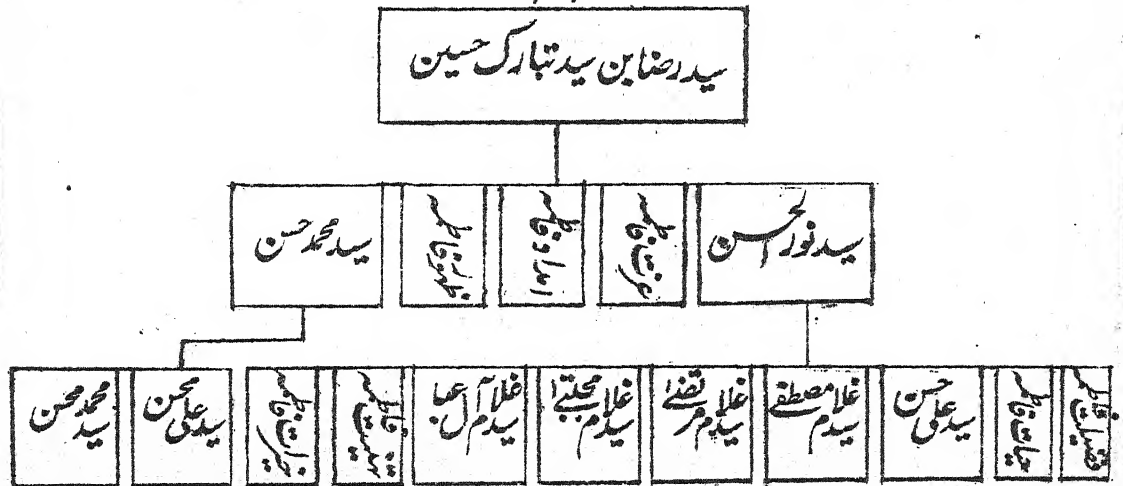 سید رضا بن سید تبارک حسین
سید نور الحسن
عزت فاطمہ
امداد فاطمہ
ظہور فاطمہ
سید محمد حسن
فضیلت فاطمہ
حیات فاطمہ
سید علی حسن
سید غلام مصطفے
سید غلام مرتضے
سید غلام مجتبےٰ
سید غلام آل عبا
فاطمہ
خیرات فاطمہ
سید علی محسن
سید محمد محسن